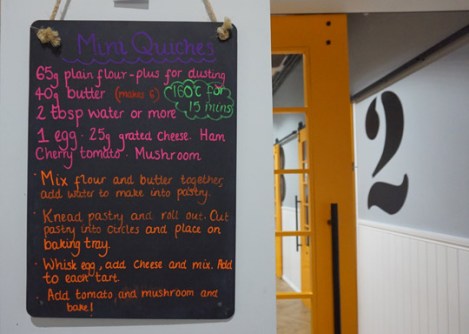 Mini Quiches
65g plain flour - plus for dusting
40g butter (makes 6) 160°C for
15 mins
2 tbsp water or more
1 egg · 25g grated cheese. Ham
Cherry tomato · Mushroom
· Mix flour and butter together,
add water to make into pastry.
· Knead pastry and roll out. Cut
pastry into circles and place on
baking tray.
· Whisk egg, add cheese and mix. Add
to each tart
· Add tomato and mushroom and
bake!
2